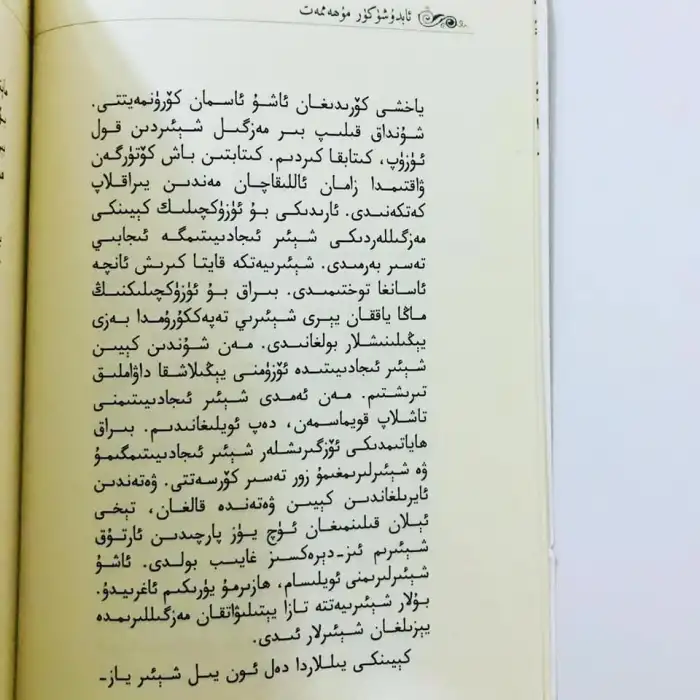 ئابدۇشۈكۈر مۇھەممەت
ياخشى كۆرىدىغان ئاشۇ ئاسمان كۆرۈنمەيتتى.
شۇنداق قىلىپ بىر مەزگىل شېئىردىن قول
ئۈزۈپ، كىتابقا كىردىم. كىتابتىن باش كۆتۈرگەن
ۋاقتىمدا زامان ئاللىقاچان مەندىن يىراقلاپ
كەتكەنىدى. ئارىدىكى بۇ ئۈزۈكچىلىك كېيىنكى
مەزگىللەردىكى شېئىر ئىجادىيىتىمگە ئىجابىي
تەسىر بەرمىدى. شېئىرىيەتكە قايتا كىرىش ئانچە
ئاسانغا توختىمىدى. بىراق بۇ ئۈزۈكچىلىكنىڭ
ماڭا ياققان يېرى شېئىرىي تەپەككۇرۇمدا بەزى
يېڭىلىنىشلار بولغانىدى. مەن شۇندىن كېيىن
شېئىر ئىجادىيىتىدە ئۆزۈمنى يېڭىلاشقا داۋاملىق
تىرىشتىم. مەن ئەمدى شېئىر ئىجادىيىتىمنى
تاشلاپ قويماسمەن، دەپ ئويلىغانىدىم. بىراق
ھاياتىمدىكى ئۆزگىرىشلەر شېئىر ئىجادىيىتىمگىمۇ
ۋە شېئىرلىرىمغىمۇ زور تەسىر كۆرسەتتى. ۋەتەندىن
ئايرىلغاندىن كېيىن ۋەتەندە قالغان، تېخى
ئېلان قىلىنمىغان ئۈچ يۈز پارچىدىن ئارتۇق
شېئىرىم ئىز-دېرەكسىز غايىب بولدى. ئاشۇ
شېئىرلىرىمنى ئويلىسام، ھازىرمۇ يۈرىكىم ئاغرىيدۇ.
بۇلار شېئىرىيەتتە تازا يېتىلىۋاتقان مەزگىللىرىمدە
يېزىلغان شېئىرلار ئىدى.
كېيىنكى يىللاردا دەل ئون يىل شېئىر ياز-